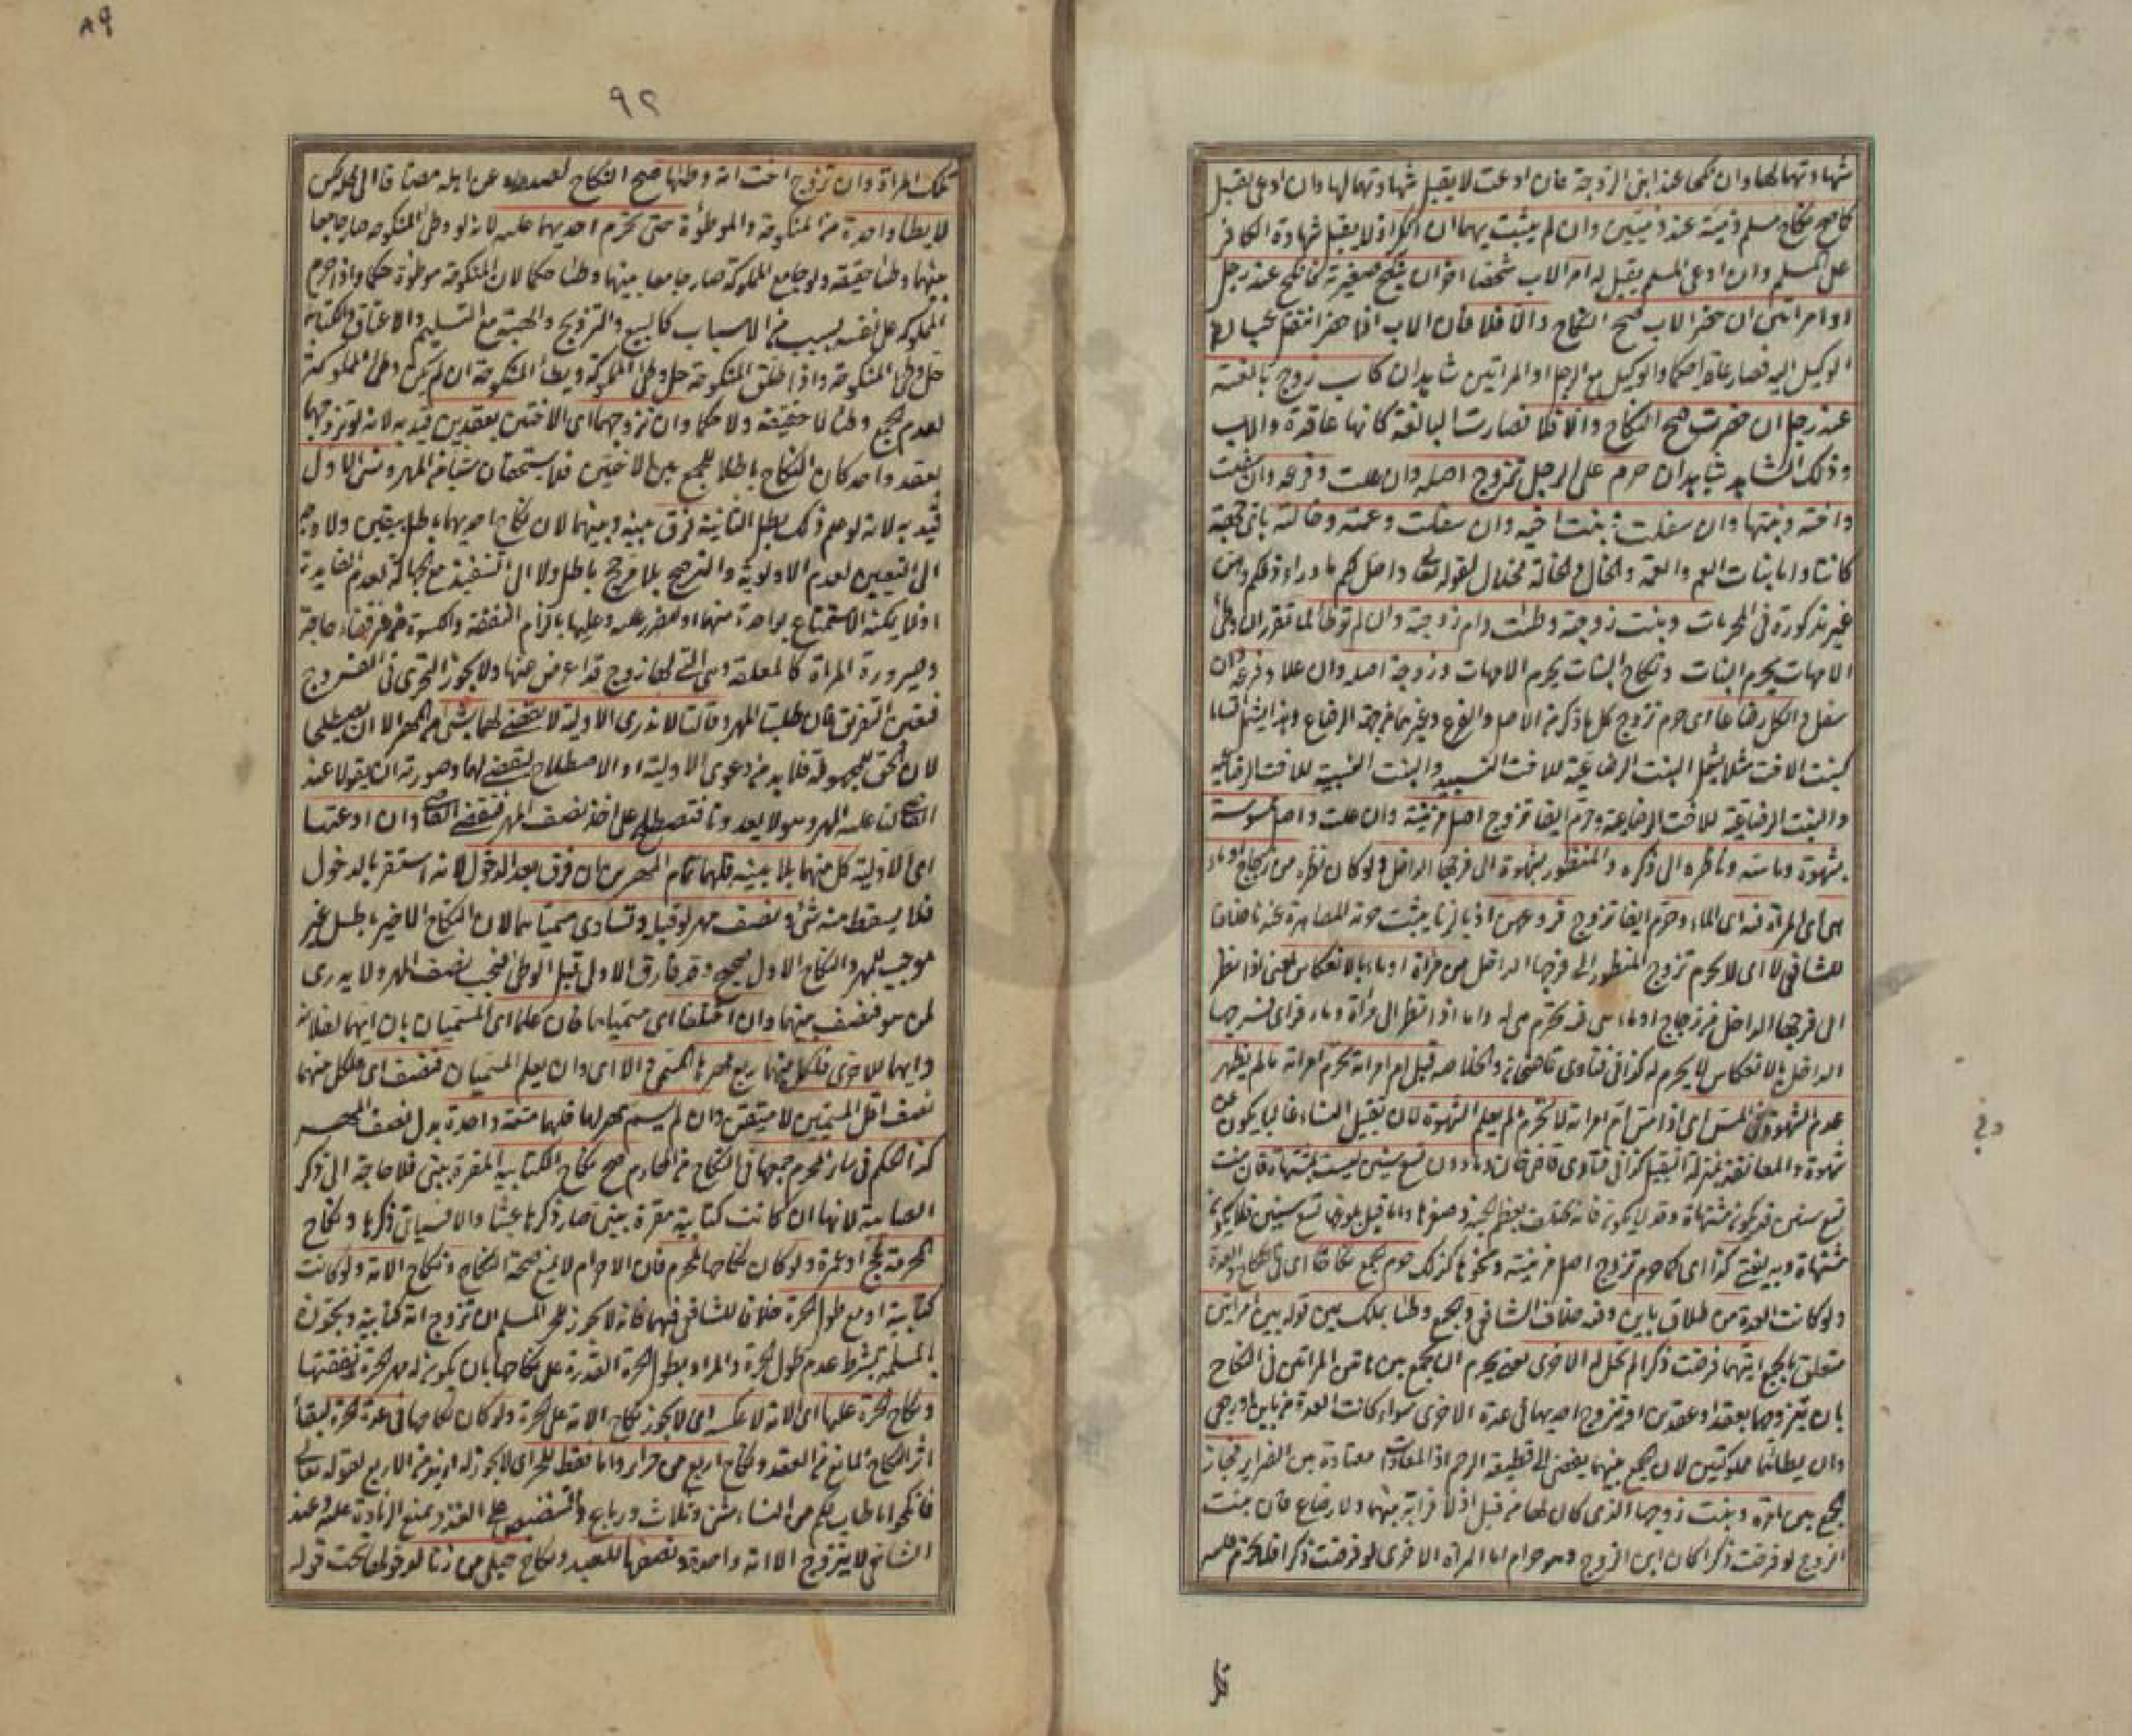 شهادتهما لها وان نكحا عند ابنى الزوجة فان ادعت لا يقبل شهادتهما لها وان ادعى يقبل
كما صح نكاح مسلم ذمية عند ذميين وان لم يثبت بهما ان انكر اذ لا يقبل شهادة الكافر
على المسلم وان ادعى المسلم يقبل له امر الاب شخصا اخر ان ينكح صغيرته فانكح عند رجل
او امراتين ان حضر الاب صح النكاح والا فلا فان الاب اذا حضر انتقل عبارة
الوكيل اليه فصار عاقدا حكما والوكيل مع الرجل او المراتين شاهدان كاب زوج بالغته
عند رجل ان حضرت صح النكاح والا فلا فصارت البالغة كانها عاقدة والاب
وذلك الشاهد شاهدان حرم على الرجل تزوج اصله وان علت وفرعه وان سفلت
واخته وبنتها وان سفلت وبنت اخيه وان سفلت وعمته وخالته باى جهة
كانتا واما بنات العم والعمة والخال والخالة فحلال لقوله تعالى واحل لكم ما وراء ذلكم وهن
غير مذكورة فى المحرمات وبنت زوجة وطئت وام زوجة وان لم توطأ لما تقرر ان وطئ
الامهات يحرم البنات ونكاح البنات يحرم الامهات وزوجة اصله وان علا وفرعه وان
سفل والكل رضاعا اى حرم تزوج كل ما ذكر من الاصل والفرع وغيرهما من جهة الرضاع وهذا يشمل اقساما
كبنت الاخت مثلا يشمل البنت الرضاعية للاخت النسبية والبنت النسبية للاخت الرضاعية
والبنت الرضاعية للاخت الرضاعية وحرم ايضا تزوج اصل مزنيته وان علت واصل ممسوسته
بشهوة وماسته وناظره الى ذكره والمنظور بشهوة الى فرجها الداخل ولو كان نظره من زجاج او ماء
هى اى المراة فيه اى الماء وحرم ايضا تزوج فروعهن اذ بالزنا يثبت حرمة المصاهرة عندنا خلافا
للشافعى لا اى لا يحرم تزوج المنظور الى فرجها الداخل من مرآة او ماء بالانعكاس يعنى اذا نظر
الى فرجها الداخل من زجاج او ماء هى فيه تحرم هى له واما اذا نظر الى مرآة او ماء فراى فرجها
الداخل بالانعكاس لا يحرم له كذا فى فتاوى قاضيخان والخلاصة قبل ام امراته تحرم امراته ما لم يظهر
عدم الشهوة وفى المس اى اذا مس ام امراته لا تحرم ما لم يعلم الشهوة لان تقبيل النساء غالبا يكون عن
شهوة والمعانقة بمنزلة التقبيل كذا فى فتاوى قاضيخان وما دون تسع سنين ليست بمشتهاة فان بنت
تسع سنين قد يكون مشتهاة وقد لا يكون فانه يختلف بعظم الجثة وصغرها واما قبل بلوغها تسع سنين فلا يكون
مشتهاة وبه يفتى كذا اى كما حرم تزوج اصل مزنيته ونحوها كذلك حرم الجمع نكاحا اى فى النكاح والعدة
ولو كانت العدة من طلاق باين وفيه خلاف الشافعى والجمع وطئا بملك يمين قوله بين امراتين
متعلق بالجمع ايتهما فرضت ذكرا لم تحل له الاخرى يعنى يحرم الجمع بين هاتين المراتين فى النكاح
بان يتزوجهما بعقد او عقدين او يتزوج احديهما فى عدة الاخرى سواء كانت العدة من باين او رجعى
وان يطأهما مملوكتين لان الجمع بينهما يفضى الى قطيعة الرحم اذ المعادات معتادة بين الضراير فجاز
الجمع بين امراة وبنت زوجها الذى كان لها من قبل اذ لا قرابة بينهما ولا رضاع فان بنت
الزوج لو فرضت ذكرا كان ابن الزوج وهو حرام اما المراة الاخرى لو فرضت ذكرا فلا تحرم عليه
٨٩
٩٢
تلك المراة وان تزوج اخت امة وطئها صح النكاح لصدوره عن اهله مضافا الى محله لكن
لا يطأ واحدة من المنكوحة والموطوءة حتى تحرم احديهما عليه لانه لو وطئ المنكوحة صار جامعا
بينهما وطئا حقيقة ولو جامع المملوكة صار جامعا بينهما وطئا حكما لان المنكوحة موطوءة حكما واذا حرم
المملوكة على نفسه بسبب من الاسباب كالبيع والتزويج والهبة مع التسليم والاعتاق والكتابة
حل وطئ المنكوحة واذا طلق المنكوحة حل وطئ المملوكة ويطأ المنكوحة ان لم يكن وطئ المملوكة
لعدم الجمع وطئا لا حقيقة ولا حكما وان تزوجهما اى الاختين بعقدين قيد به لانه لو تزوجهما
بعقد واحد كان النكاح باطلا للجمع بين الاختين فلا يستحقان شيئا من المهر ونسى الاول
قيد به لانه لو علم ذلك بطل الثانية فرق بينه وبينهما لان نكاح احديهما باطل بيقين ولا وجه
الى التعيين لعدم الاولوية والترجيح بلا مرجح باطل ولا الى التنفيذ مع الجهالة لعدم الفايدة
اذ لا يمكنه الاستمتاع بواحدة منهما وللضرر عليه وعليهما بالزام النفقة والكسوة من غير قضاء حاجة
وصيرورة المراة كالمعلقة وهى التى لها زوج قد اعرض عنها ولا يجوز التحرى فى الفروج
فتعين التفريق فان طلبتا المهر وقالتا لا ندرى الاولية لا يقضى لهما بشئ من المهر الا ان يصطلحا
لان الحق للمجهولة فلا بد من دعوى الاولية او الاصطلاح ليقضى لهما وصورته ان يقولا عند
القاضى لنا عليه المهر وهو لا يعدونا فنصطلح على اخذ نصف المهر فيقضى القاضى وان ادعتها
اى الاولية كل منهما بلا بينة فلهما تمام المهرين ان فرق بعد الدخول لانه استقر بالدخول
فلا يسقط منه شئ ونصف مهر لو قبل وتساوى مسمياهما لان النكاح الاخير باطل غير
موجب للمهر والنكاح الاول صحيح وقد فارق الاولى قبل الوطئ فيجب نصف المهر ولا يدرى
لمن هو فنصف بينهما وان اختلفا اى مسمياهما فان علما اى المسميان بان ايهما لفلانة
وايهما للاخرى فلكل منهما ربع مهرها المسمى والا اى وان لم يعلم المسميان فنصف اى فلكل منهما
نصف اقل المسميين لانه متيقن وان لم يسم مهر لها فلهما متعة واحدة بدل نصف المهر
كذا الحكم فى سائر المحرم جمعهما فى النكاح من المحارم صح نكاح الكتابية المقرة بنبى فلا حاجة الى ذكر
الصابئة لانها ان كانت كتابية مقرة بنبى صار ذكرها عبثا والا فسياتى ذكرها ونكاح
المحرمة بحج او عمرة ولو كان نكاحها لمحرم فان الاحرام لا يمنع صحة النكاح ونكاح الامة ولو كانت
كتابية او مع طول الحرة خلافا للشافعى فيهما فانه لا يجوز للحر المسلم ان يتزوج امة كتابية ويجوز
بالمسلمة بشرط عدم طول الحرة والمراد بطول الحرة القدرة على نكاحها بان يكون له مهر الحرة ونفقتها
ونكاح الحرة عليها اى الامة لا عكسه اى لا يجوز نكاح الامة على الحرة ولو كان نكاحها فى عدة الحرة لبقاء
اثر النكاح المانع من العقد ونكاح اربع من حراير واماء فقط للحر اى لا يجوز له ازيد من الاربع لقوله تعالى
فانكحوا ما طاب لكم من النساء مثنى وثلاث ورباع والتنصيص على العدد يمنع الزيادة عليه وعند
الشافعى لا يتزوج الا امة واحدة ونصفها للعبد ونكاح حبلى من زنا لدخولها تحت قوله